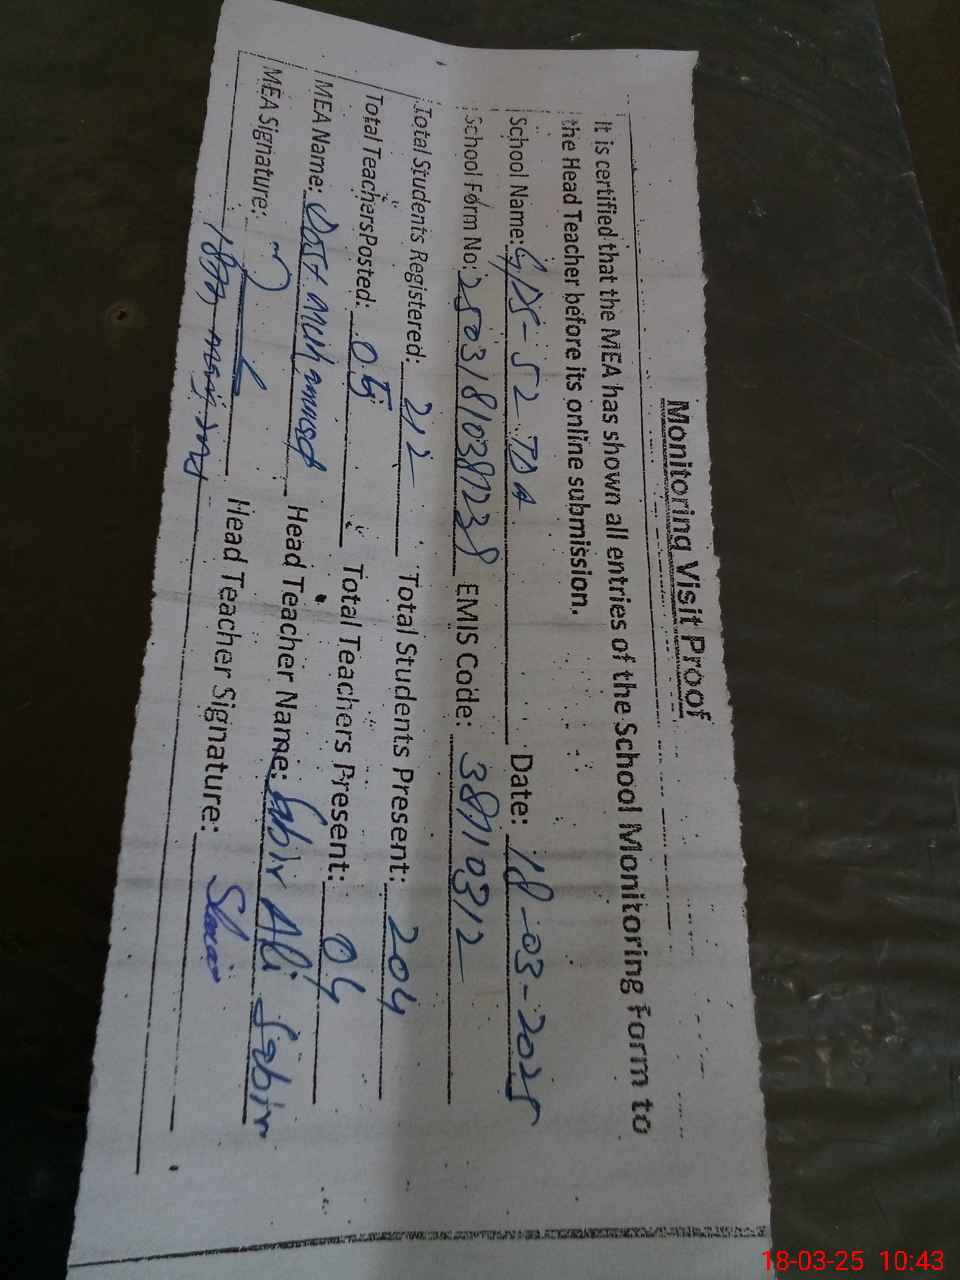 Monitoring Visit Proof
It is certified that the MEA has shown all entries of the School Monitoring Form to
the Head Teacher before its online submission.
School Name: GPS-52 TDA Date: 18-03-2025
School Form No: EMIS Code: 38710312
Total Students Registered: 212 Total Students Present: 204
Total TeachersPosted: 05 Total Teachers Present: 04
MEA Name: Dost Muhammad Head Teacher Name: Sabir Ali Sabir
MEA Signature: Head Teacher Signature:
18-03-25 10:43